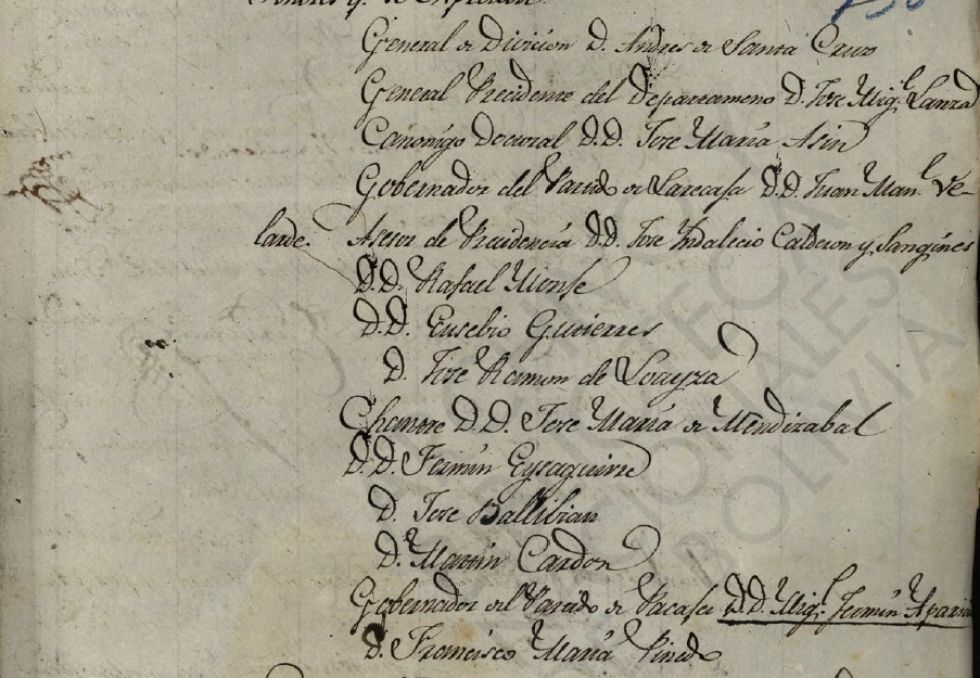 Señores q.e se expresan
General de Divicion D. Andres de Santa Cruz
General Precidente del Departameno D. Jose Mig.l Lanza
Canonigo Doctoral D.D. Jose María Asin
Gobernador del Partido de Larecasa D.D. Juan Man.l Ve-
larde. Asesor de Precidencia D.D. Jose Indalecio Calderon y Sangines
D.D. Rafael Monse
D.D. Eusebio Gutierres
D. Jose Ramon de Loayza
Chantre D.D. Jose María de Mendizabal
D.D. Fermin Eysaguirre
D. Jose Ballibian
D. Martin Cardon
Gobernador del Partido de Pacases D.D. Mig.l Fermin Aparicio
D. Francisco María Pinedo
BOLIVIA